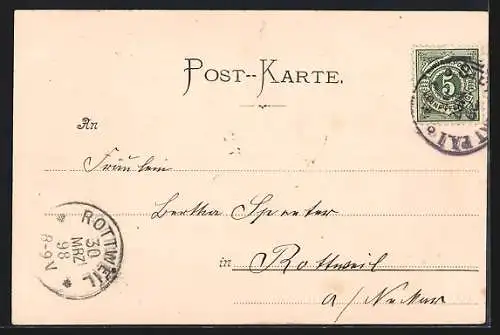 POST-KARTE.
5
An
Fräulein
Bertha
in Rottweil
a/Neckar
ROTTWEIL
30
MRZ
98
8-9V